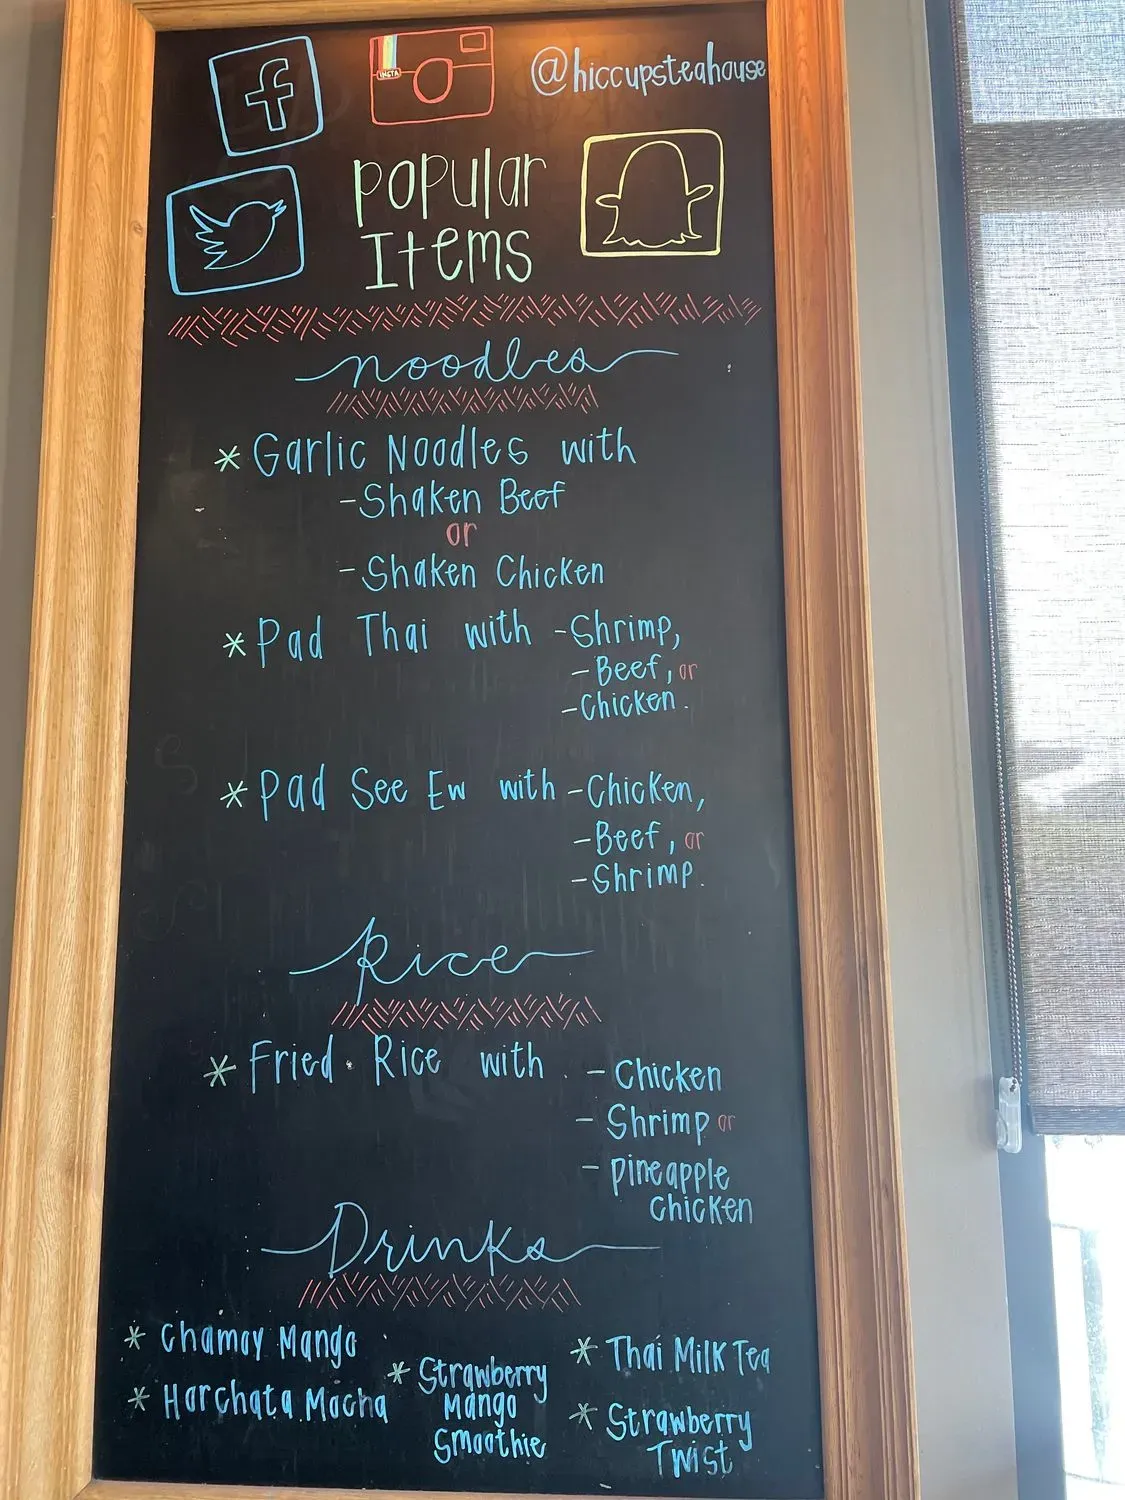 @hiccupsteahouse
INSTA
Popular
Items
noodles
* Garlic Noodles with
- Shaken Beef
or
- Shaken Chicken
* Pad Thai with - Shrimp,
- Beef, or
- Chicken.
* Pad See Ew with - Chicken,
- Beef, or
- Shrimp.
Rice
* Fried Rice with - Chicken
- Shrimp or
- Pineapple
Chicken
Drinks
* Chamoy Mango
* Harchata Mocha
* Strawberry
Mango
Smoothie
* Thai Milk Tea
* Strawberry
Twist